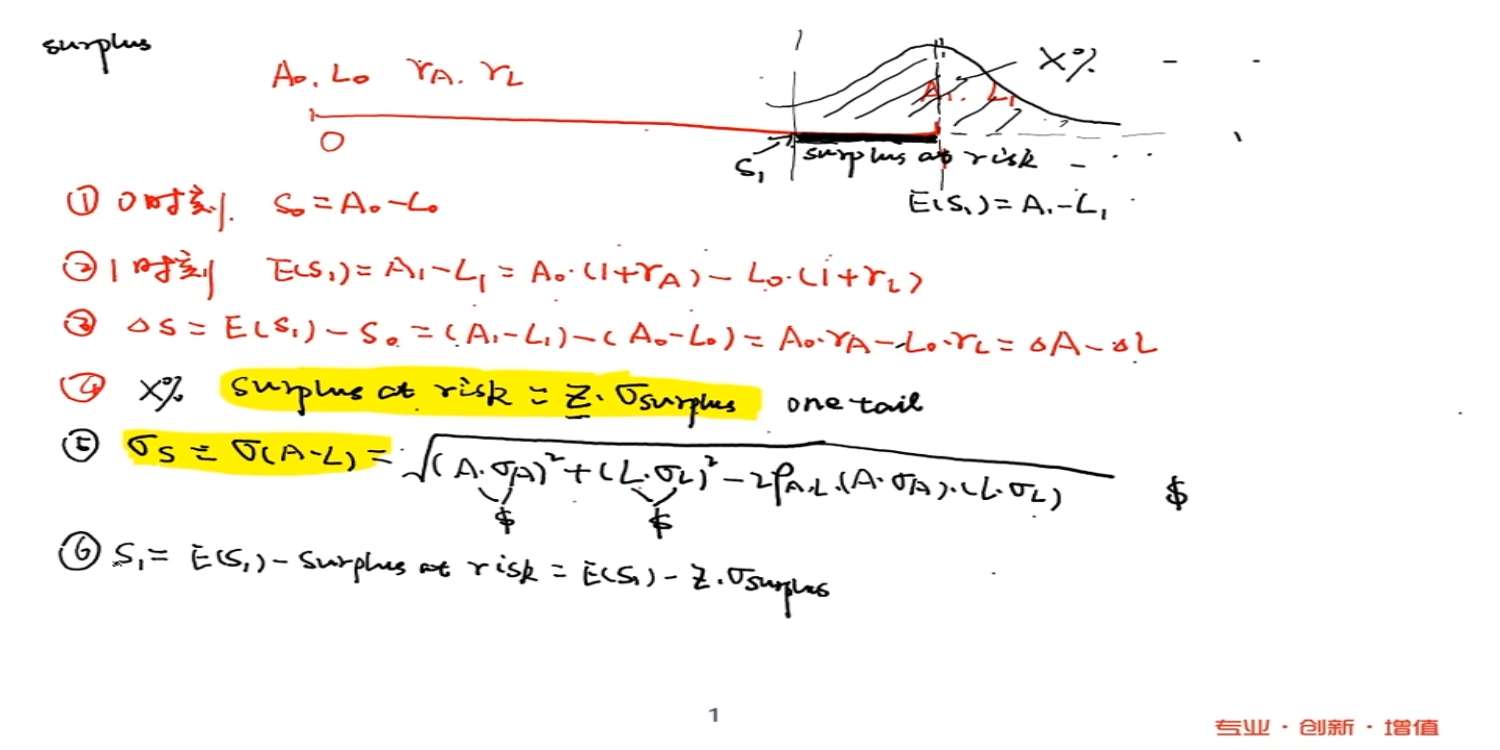 surplus
A₀. L₀ r_A. r_L
X%
A₁. L₁
0
S₁ surplus at risk
E(S₁) = A₁-L₁
① 0时刻. S₀ = A₀-L₀
② 1时刻 E(S₁) = A₁-L₁ = A₀·(1+r_A) - L₀·(1+r_L)
③ △S = E(S₁) - S₀ = (A₁-L₁) - (A₀-L₀) = A₀·r_A - L₀·r_L = △A - △L
④ X% surplus at risk = Z·σsurplus one tail
⑤ σ_S = σ(A-L) = √((A·σ_A)² + (L·σ_L)² - 2ρ_A,L·(A·σ_A)·(L·σ_L)) $
$ $
⑥ S₁ = E(S₁) - surplus at risk = E(S₁) - Z·σsurplus
1
专业·创新·增值